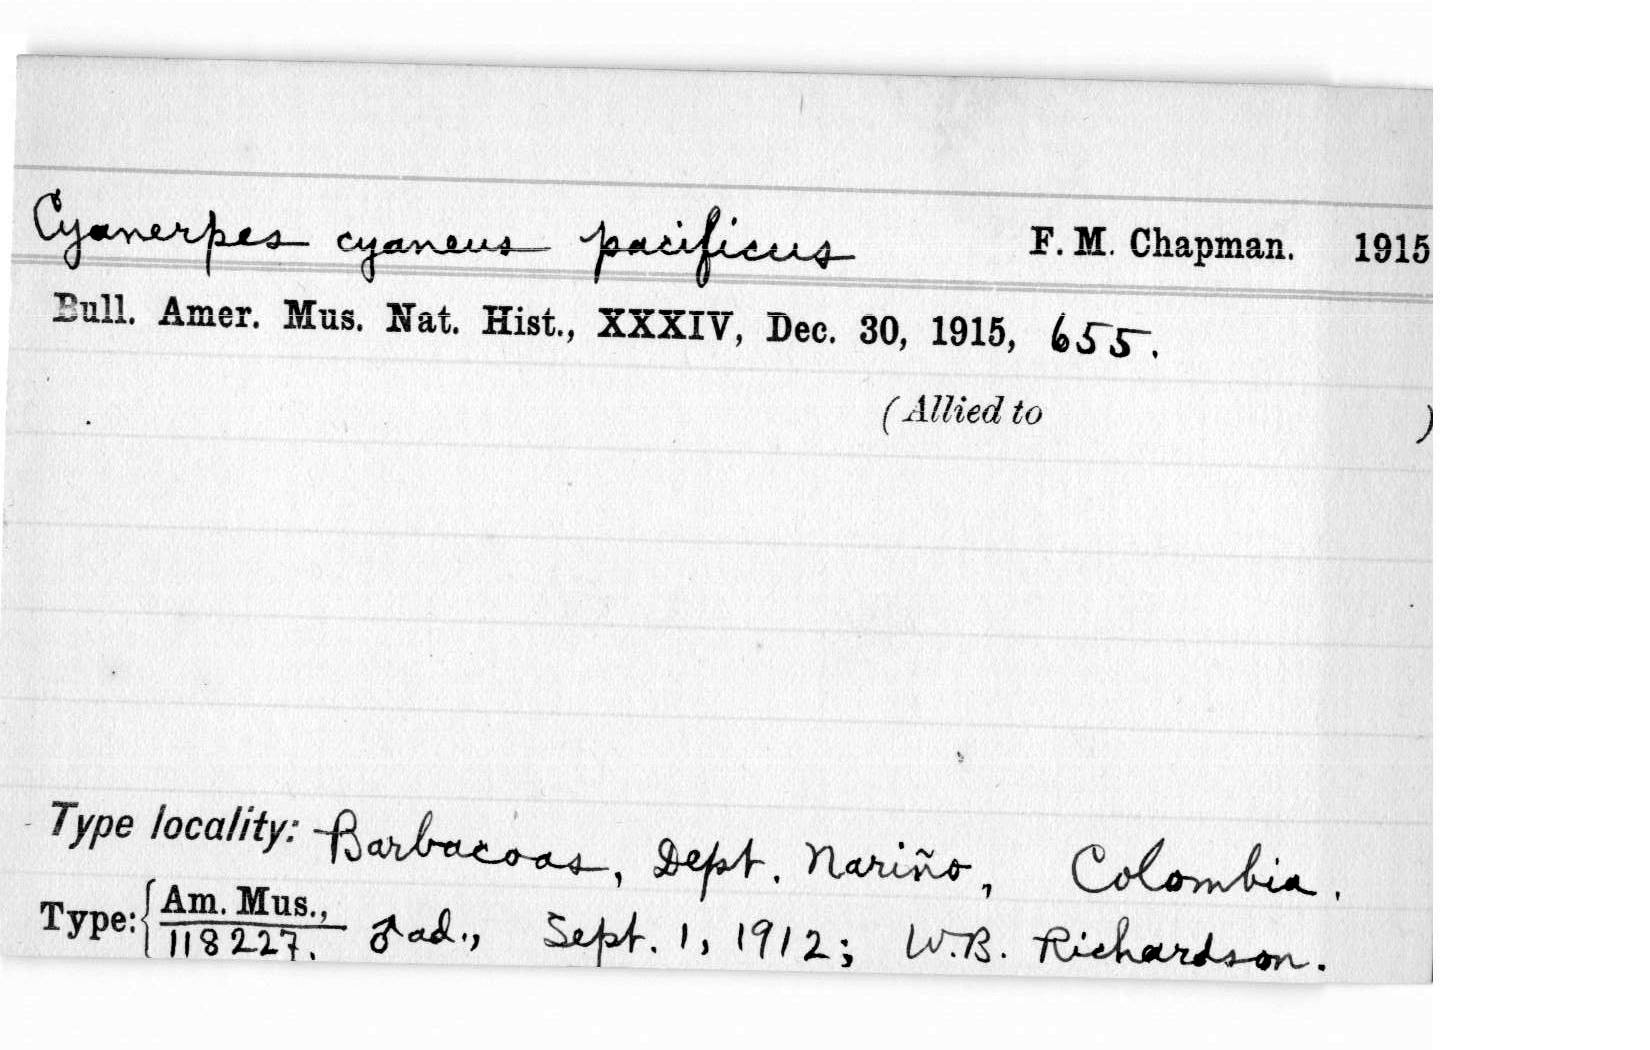 Cyanerpes cyaneus pacificus F. M. Chapman. 1915
Bull. Amer. Mus. Nat. Hist., XXXIV, Dec. 30, 1915, 655.
(Allied to )
Type locality: Barbacoas, Dept. Nariño, Colombia.
Type: { Am. Mus.,
118227. ♂ ad., Sept. 1, 1912; W.B. Richardson.